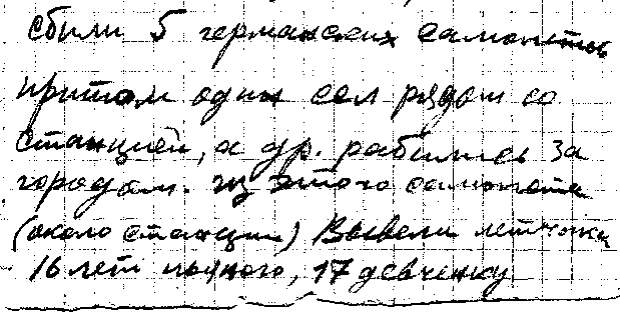 сбили 5 германских самолетов
притом один сел рядом со
станцией, а др. рабились за
городам. из этого самолета
(около станции) Вывели летчика
16 лет пьяного, 17 девченку